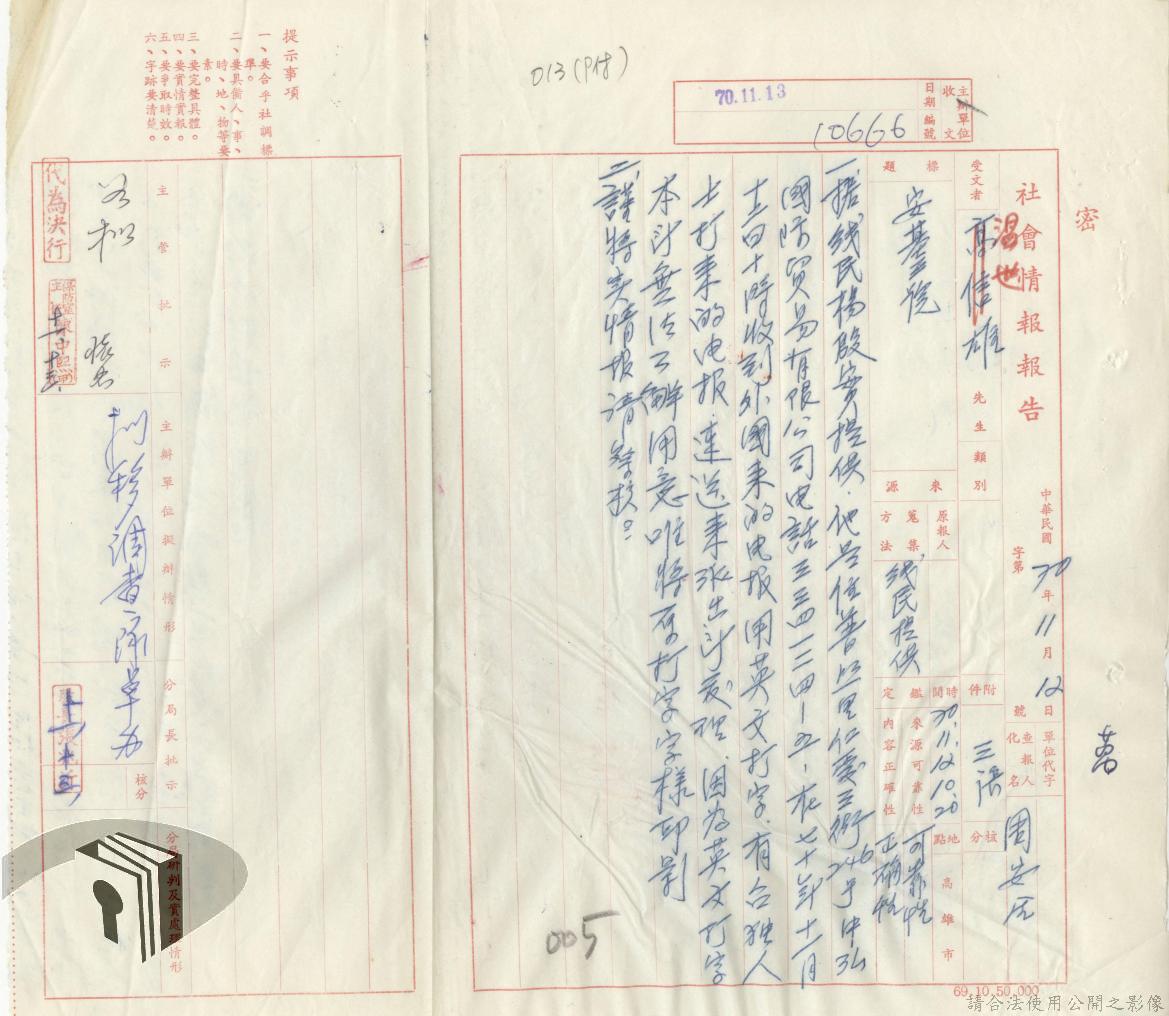 密
社會情報報告
中華民國70年11月12日
字第
號
單位代字
查報人
化名
周安居
受文者
高信雄
溫世
先生
類別
附件
三張
核分
標題
安基三號
來源
原報人
蒐集方法
線民提供
時間
70.11.12.10.20.
地點
高雄市
鑑定
來源可靠性
可靠性
內容正確性
正確性
一、據線民楊殷安提供,他是住普照里仁愛三街246号中弘
國際貿易有限公司電話三三四一二四一五,在七十年十一月
十二日十時收到外國來的电报用英文打字,有台独人
士打來的电报,速送來派出所處理,因為英文打字
本所無法了解用意唯將原打字字樣印影
二、謹將实情报請鑒核。
主辦單位
收文
日期
70.11.13
編號
10666
013(P附)
005
萬
提示事項
一、要合乎社調標準。
二、要具備人、事、時、地、物等要素。
三、要完整具體。
四、要實情實報。
五、要爭取時效。
六、字跡要清楚。
主管批示
代為決行
主辦單位擬辦情形
擬移調查隊卓办
分局長批示
核分
分局研判及實處理情形
69.10.50,000
請合法使用公開之影像